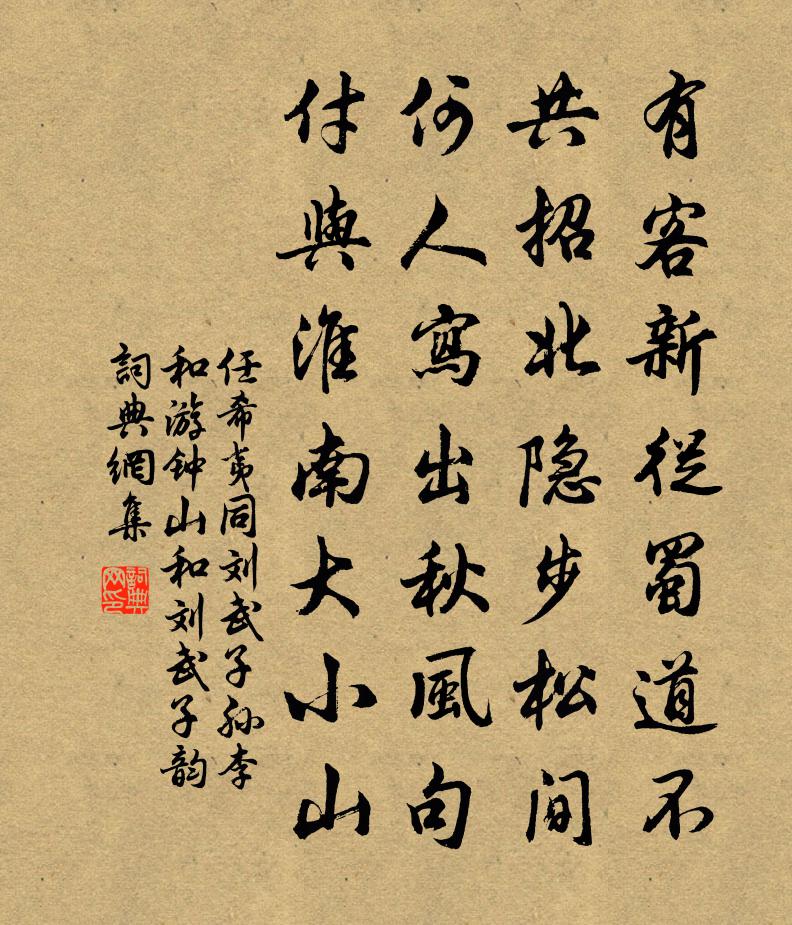 有客新從蜀道不
共招北隐步松間
何人寫出秋風句
付與淮南大小山
任希夷同刘武子孙李
和游钟山和刘武子韵
詞典網集
詞典网印